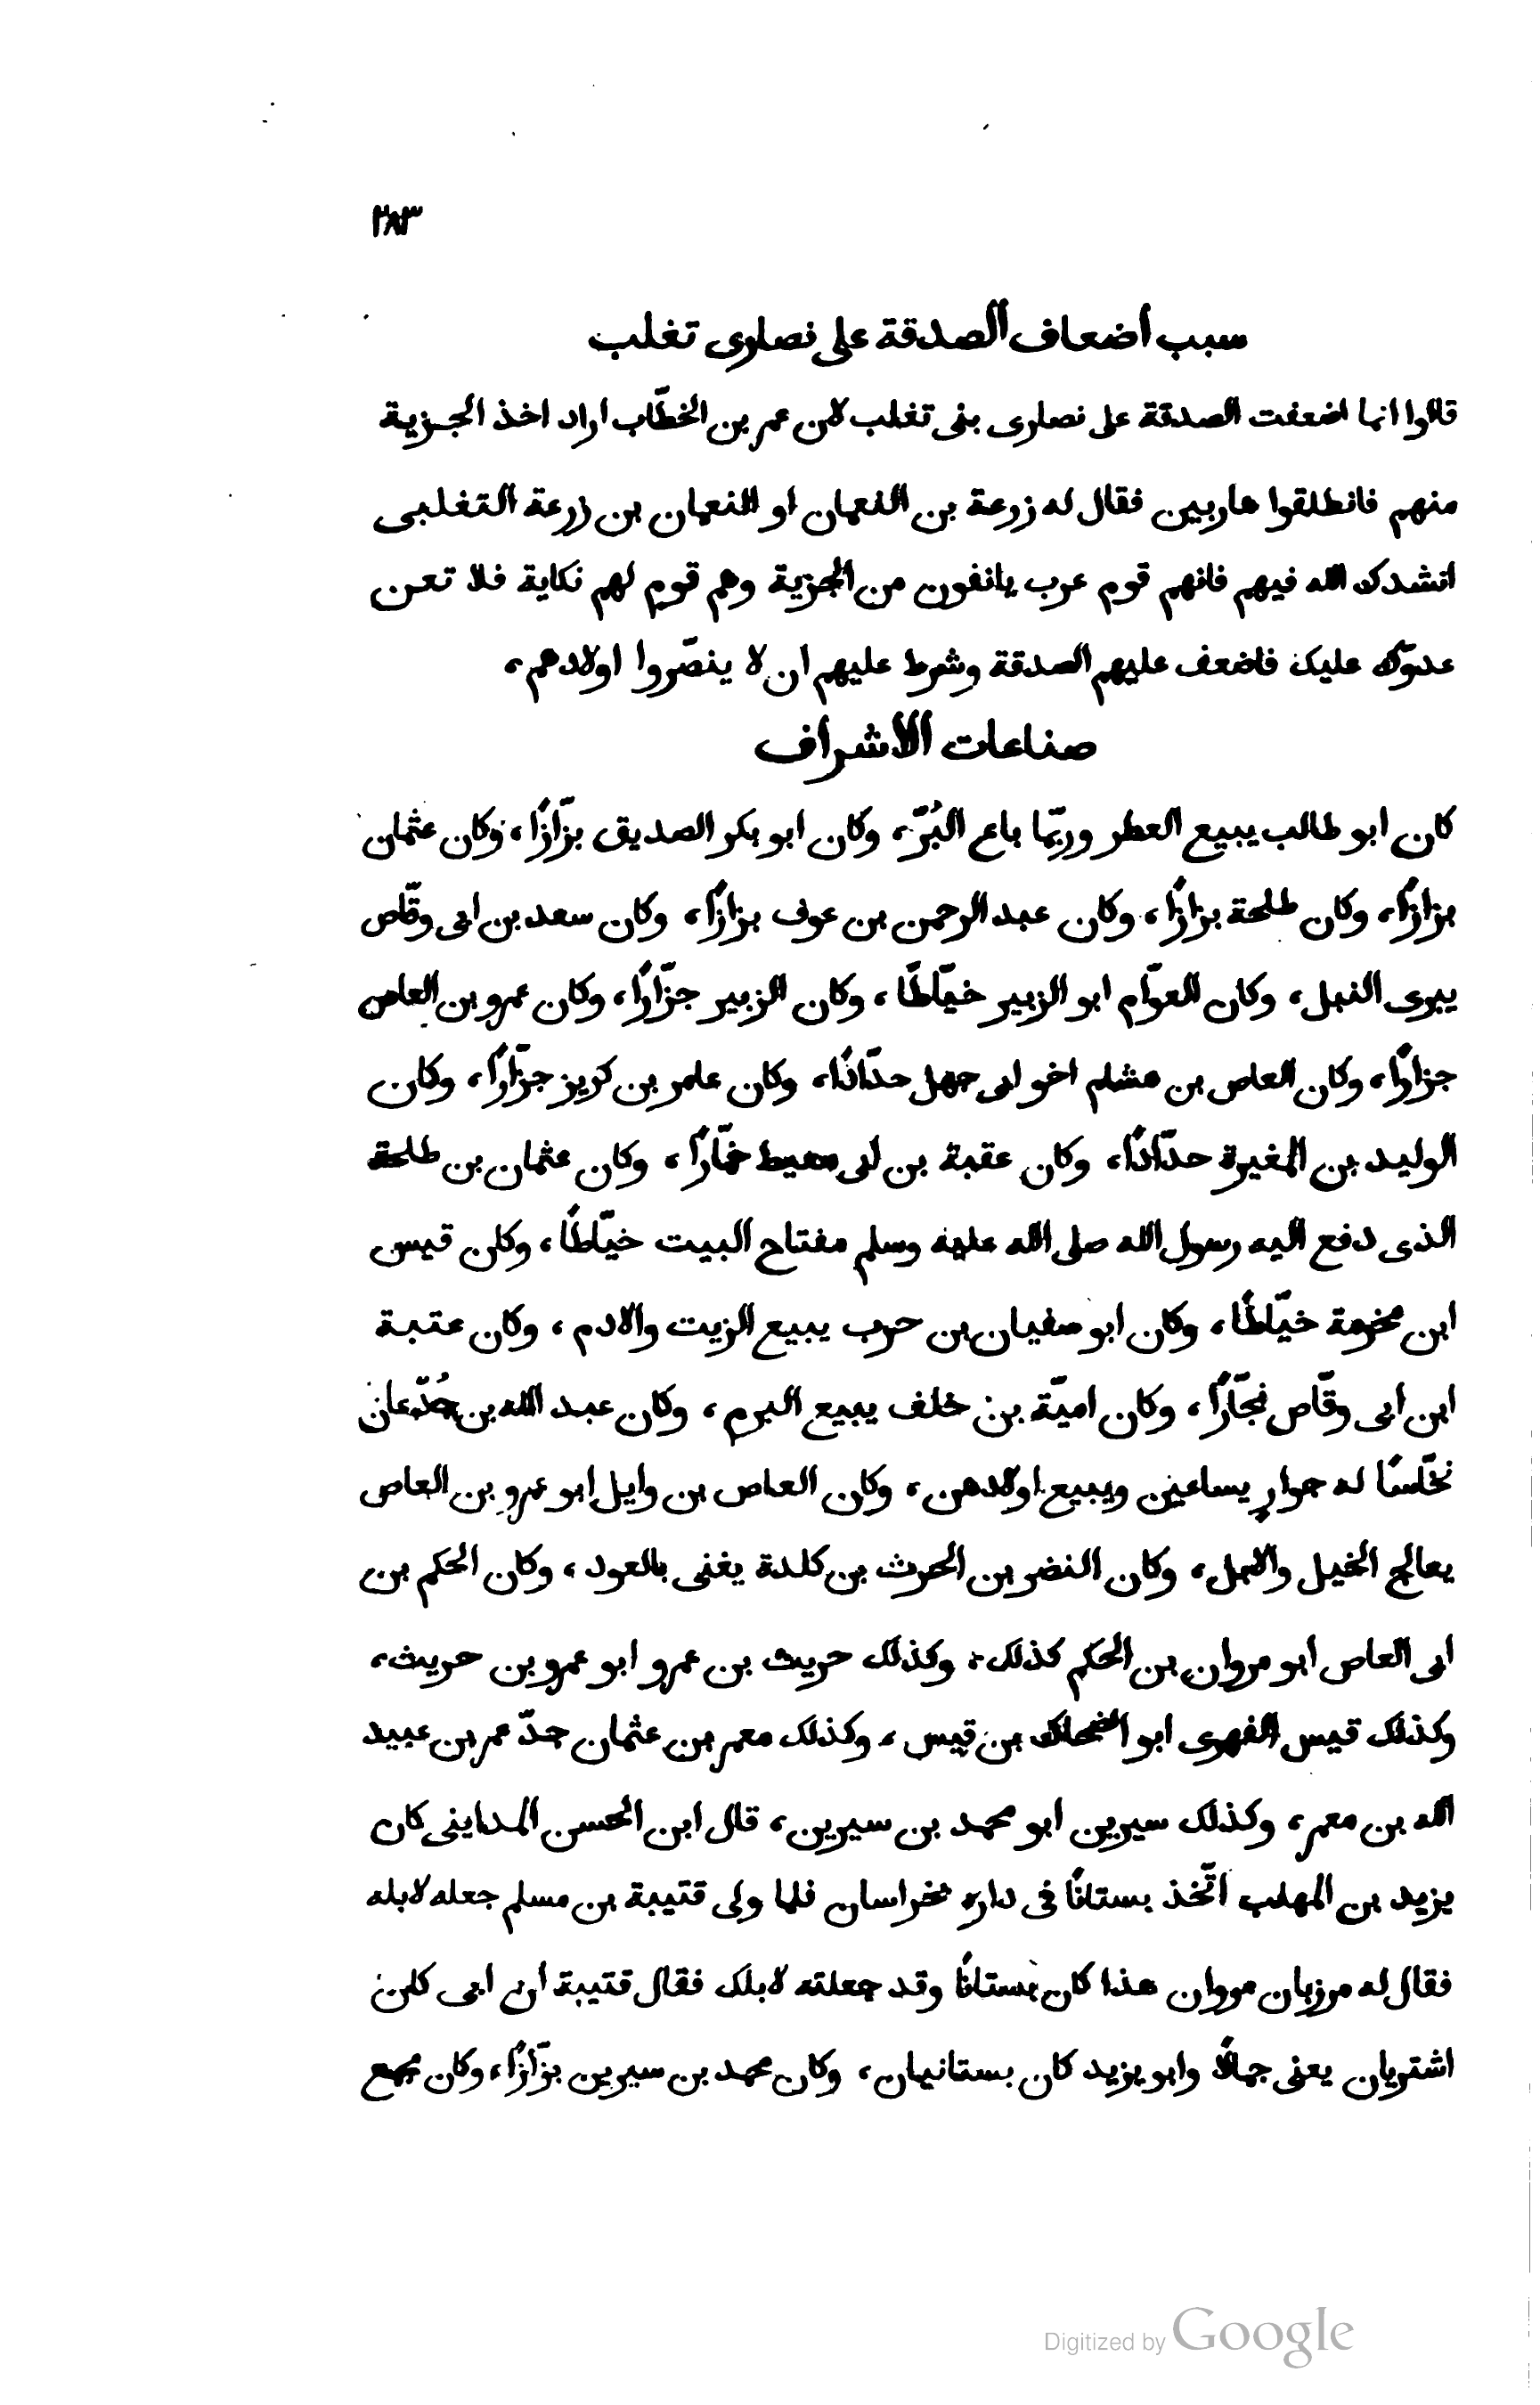 ٢٨٣
سبب اضعاف الصدقة على نصارى تغلب
قالوا انما اضعفت الصدقة على نصارى بنى تغلب لان عمر بن الخطّاب اراد اخذ الجزية
منهم فانطلقوا هاربين فقال له زرعة بن النعمان او النعمان بن زرعة التغلبى
انشدك الله فيهم فانهم قوم عرب يانفون من الجزية وهم قوم لهم نكاية فلا تعن
عدوّك عليك فاضعف عليهم الصدقة وشرط عليهم ان لا ينصّروا اولادهم،
صناعات الاشراف
كان ابو طالب يبيع العطر وربّما باع البُرّ، وكان ابو بكر الصديق بزّازًا، وكان عثمان
بزازًا، وكان طلحة بزازًا، وكان عبد الرحمن بن عوف بزازًا، وكان سعد بن ابى وقّاص
يبرى النبل، وكان العوّام ابو الزبير خيّاطًا، وكان الزبير جزّارًا، وكان عمرو بن العاص
جزارًا، وكان العاص بن هشام اخو ابى جهل حدّادًا، وكان عامر بن كريز جزّارًا، وكان
الوليد بن المغيرة حدّادًا، وكان عقبة بن ابى معيط خمّارًا، وكان عثمان بن طلحة
الذى دفع اليه رسول الله صلى الله عليه وسلم مفتاح البيت خيّاطًا، وكان قيس
ابن مخرمة خيّاطًا، وكان ابو سفيان بن حرب يبيع الزيت والادم، وكان عتبة
ابن ابى وقّاص نجّارًا، وكان اميّة بن خلف يبيع البرم، وكان عبد الله بن جُدّعان
نخّاسًا له جوارٍ يساعين ويبيع اولادهن، وكان العاص بن وايل ابو عمرو بن العاص
يعالج الخيل والابل، وكان النضر بن الحرث بن كلدة يغنى بالعود، وكان الحكم بن
ابى العاص ابو مروان بن الحكم كذلك، وكذلك حريث بن عمرو ابو عمرو بن حريث،
وكذلك قيس الفهرى ابو الضحاك بن قيس، وكذلك معمر بن عثمان جدّ عمر بن عبيد
الله بن معمر، وكذلك سيرين ابو محمد بن سيرين، قال ابن الحسن المداينى كان
يزيد بن المهلب اتّخذ بستانًا فى داره بخراسان فلما ولى قتيبة بن مسلم جعله لابله
فقال له مرزبان مروان هذا كان بستانًا وقد جعلته لابلك فقال قتيبة ان ابى كان
اشتربان يعنى جمالًا وابو يزيد كان بستانبان، وكان محمد بن سيرين بزّازًا، وكان مجمع
Digitized by Google